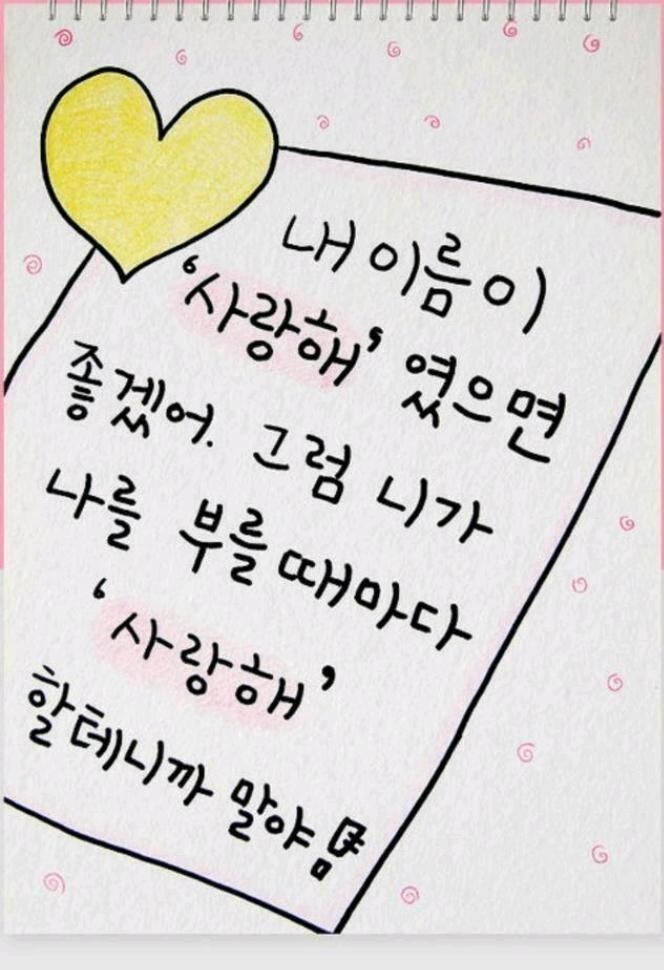 내 이름이
'사랑해' 였으면
좋겠어. 그럼 니가
나를 부를 때마다
'사랑해'
할테니까 말야